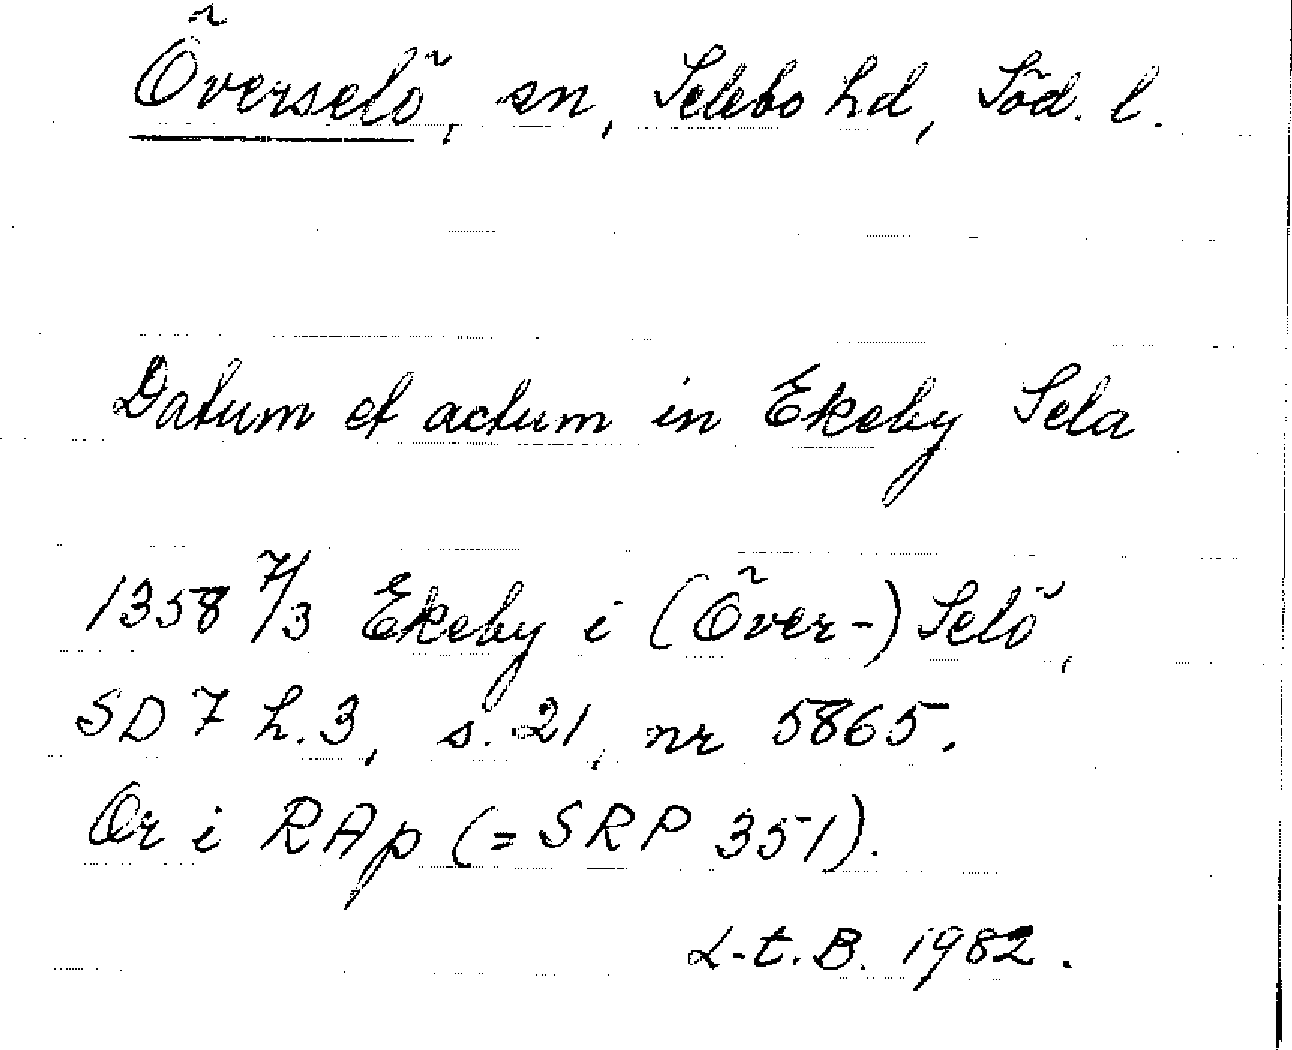 Överselö, sn, Selebo hd, Söd. l.
Datum et actum in Ekeby Sela
1358 7/3 Ekeby i (Över-) Selö,
SD 7 h. 3, s. 21, nr 5865.
Or i RAp (= SRP 351).
L-t. B. 1982.